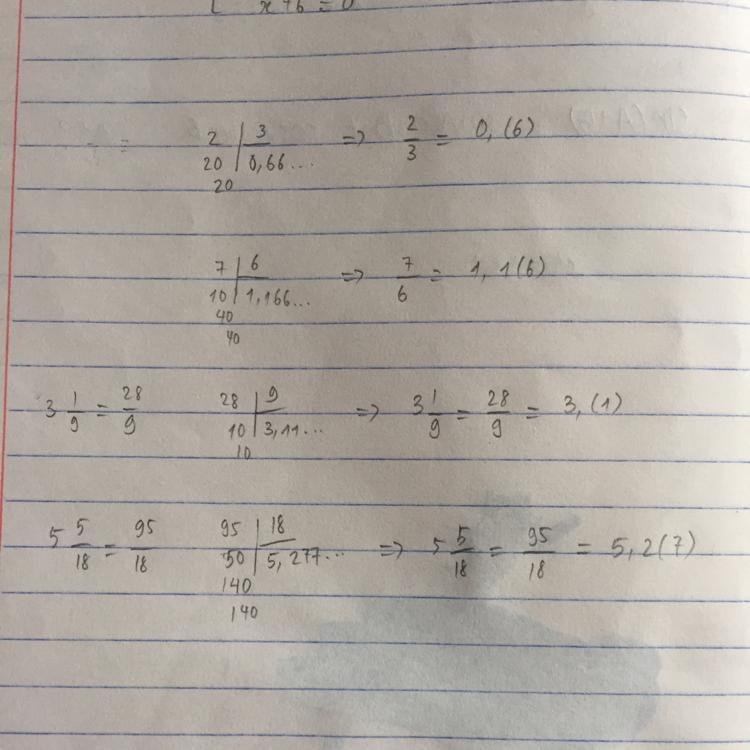 x+6 = 0
2 | 3 => 2/3 = 0,(6)
20 | 0,66...
20
7 | 6 => 7/6 = 1,1(6)
10 | 1,166...
40
40
3 1/9 = 28/9 28 | 9 => 3 1/9 = 28/9 = 3,(1)
10 | 3,11...
10
5 5/18 = 95/18 95 | 18 => 5 5/18 = 95/18 = 5,2(7)
50 | 5,277...
140
140